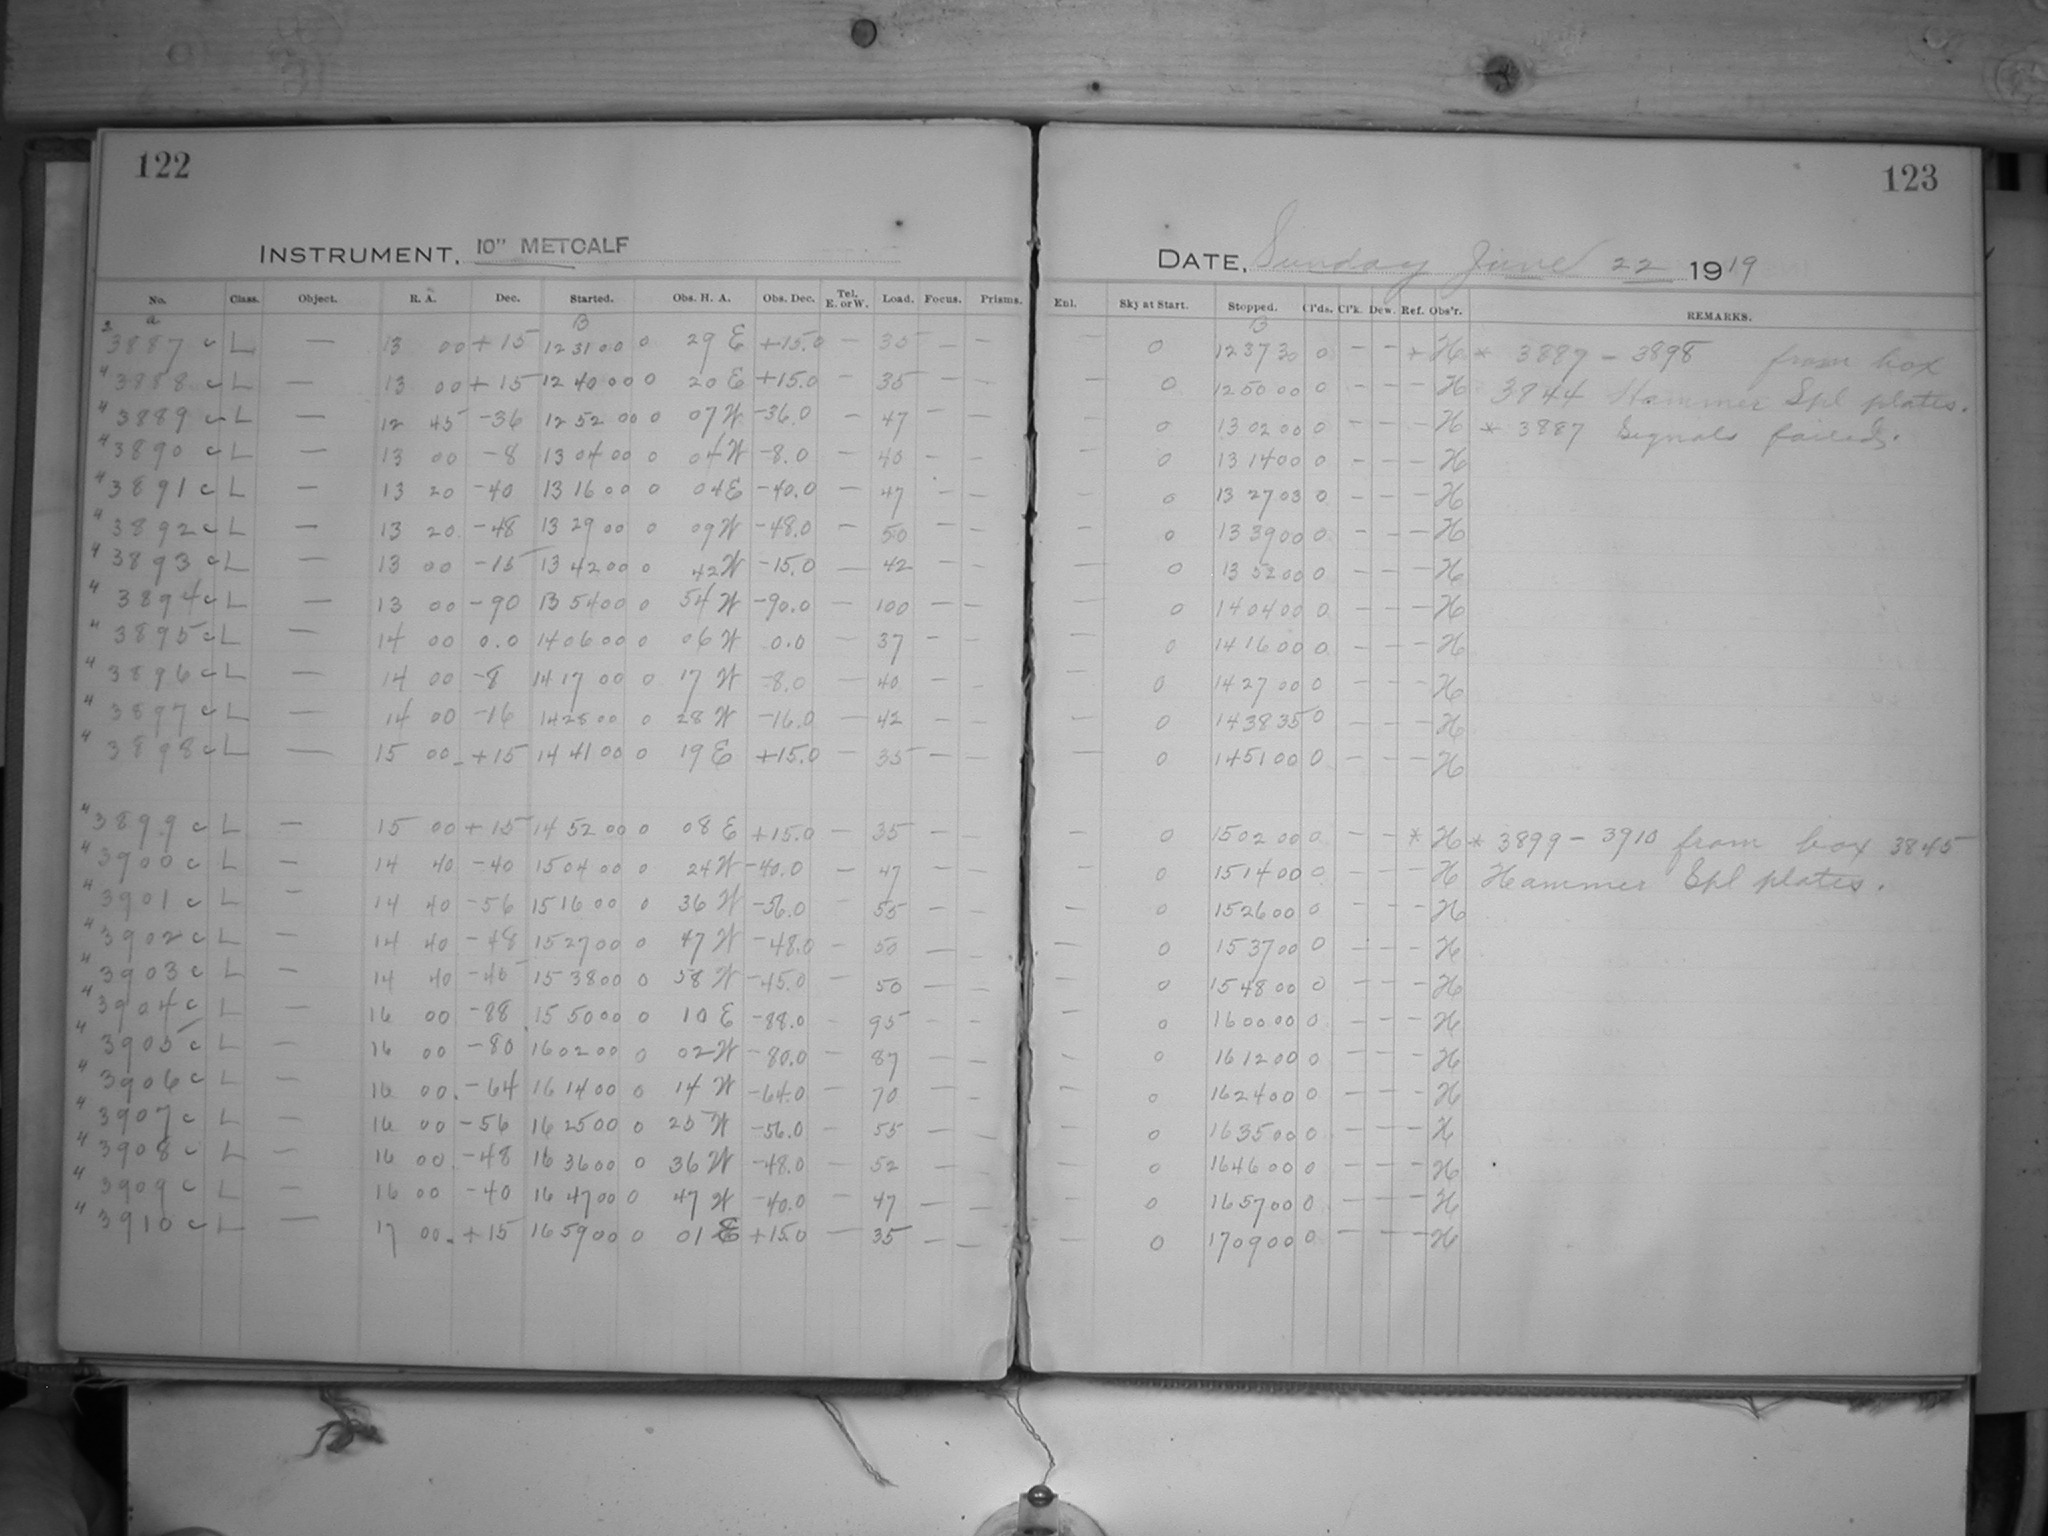 122
INSTRUMENT. 10" METCALF
No. Class. Object. R. A. Dec. Started. Obs. H. A. Obs. Dec. Tel. E. or W. Load. Focus. Prisms.
a B
2 3887 c L — 13 00 +15 12 31 00 0 29 E +15.0 — 35 — —
4 3888 c L — 13 00 +15 12 40 00 0 20 E +15.0 — 35 — —
4 3889 c L — 12 45 -36 12 52 00 0 07 W -36.0 — 47 — —
4 3890 c L — 13 00 -8 13 04 00 0 04 W -8.0 — 40 — —
4 3891 c L — 13 20 -40 13 16 00 0 04 E -40.0 — 47 — —
4 3892 c L — 13 20 -48 13 29 00 0 09 W -48.0 — 50 — —
4 3893 c L — 13 00 -15 13 42 00 0 42 W -15.0 — 42 — —
4 3894 c L — 13 00 -90 13 54 00 0 54 W -90.0 — 100 — —
4 3895 c L — 14 00 0.0 14 06 00 0 06 W 0.0 — 37 — —
4 3896 c L — 14 00 -8 14 17 00 0 17 W -8.0 — 40 — —
4 3897 c L — 14 00 -16 14 28 00 0 28 W -16.0 — 42 — —
4 3898 c L — 15 00 +15 14 41 00 0 19 E +15.0 — 35 — —
4 3899 c L — 15 00 +15 14 52 00 0 08 E +15.0 — 35 — —
4 3900 c L — 14 40 -40 15 04 00 0 24 W -40.0 — 47 — —
4 3901 c L — 14 40 -56 15 16 00 0 36 W -56.0 — 55 — —
4 3902 c L — 14 40 -48 15 27 00 0 47 W -48.0 — 50 — —
4 3903 c L — 14 40 -45 15 38 00 0 58 W -45.0 — 50 — —
4 3904 c L — 16 00 -88 15 50 00 0 10 E -88.0 — 95 — —
4 3905 c L — 16 00 -80 16 02 00 0 02 W -80.0 — 87 — —
4 3906 c L — 16 00 -64 16 14 00 0 14 W -64.0 — 70 — —
4 3907 c L — 16 00 -56 16 25 00 0 25 W -56.0 — 55 — —
4 3908 c L — 16 00 -48 16 36 00 0 36 W -48.0 — 52 — —
4 3909 c L — 16 00 -40 16 47 00 0 47 W -40.0 — 47 — —
4 3910 c L — 17 00 +15 16 59 00 0 01 E +15.0 — 35 — —
123
DATE, Sunday June 22 1919
Enl. Sky at Start. Stopped. Cl'ds. Cl'k. Dew. Ref. Obs'r. REMARKS.
B
— 0 12 37 30 0 — — * H * 3887 - 3898 from box
— 0 12 50 00 0 — — — H 3844 Hammer Spl plates.
— 0 13 02 00 0 — — — H * 3887 Signals failed.
— 0 13 14 00 0 — — — H
— 0 13 27 03 0 — — — H
— 0 13 39 00 0 — — — H
— 0 13 52 00 0 — — — H
— 0 14 04 00 0 — — — H
— 0 14 16 00 0 — — — H
— 0 14 27 00 0 — — — H
— 0 14 38 35 0 — — — H
— 0 14 51 00 0 — — — H
— 0 15 02 00 0 — — * H * 3899 - 3910 from box 3845
— 0 15 14 00 0 — — — H Hammer Spl plates.
— 0 15 26 00 0 — — — H
— 0 15 37 00 0 — — — H
— 0 15 48 00 0 — — — H
— 0 16 00 00 0 — — — H
— 0 16 12 00 0 — — — H
— 0 16 24 00 0 — — — H
— 0 16 35 00 0 — — — H
— 0 16 46 00 0 — — — H
— 0 16 57 00 0 — — — H
— 0 17 09 00 0 — — — H